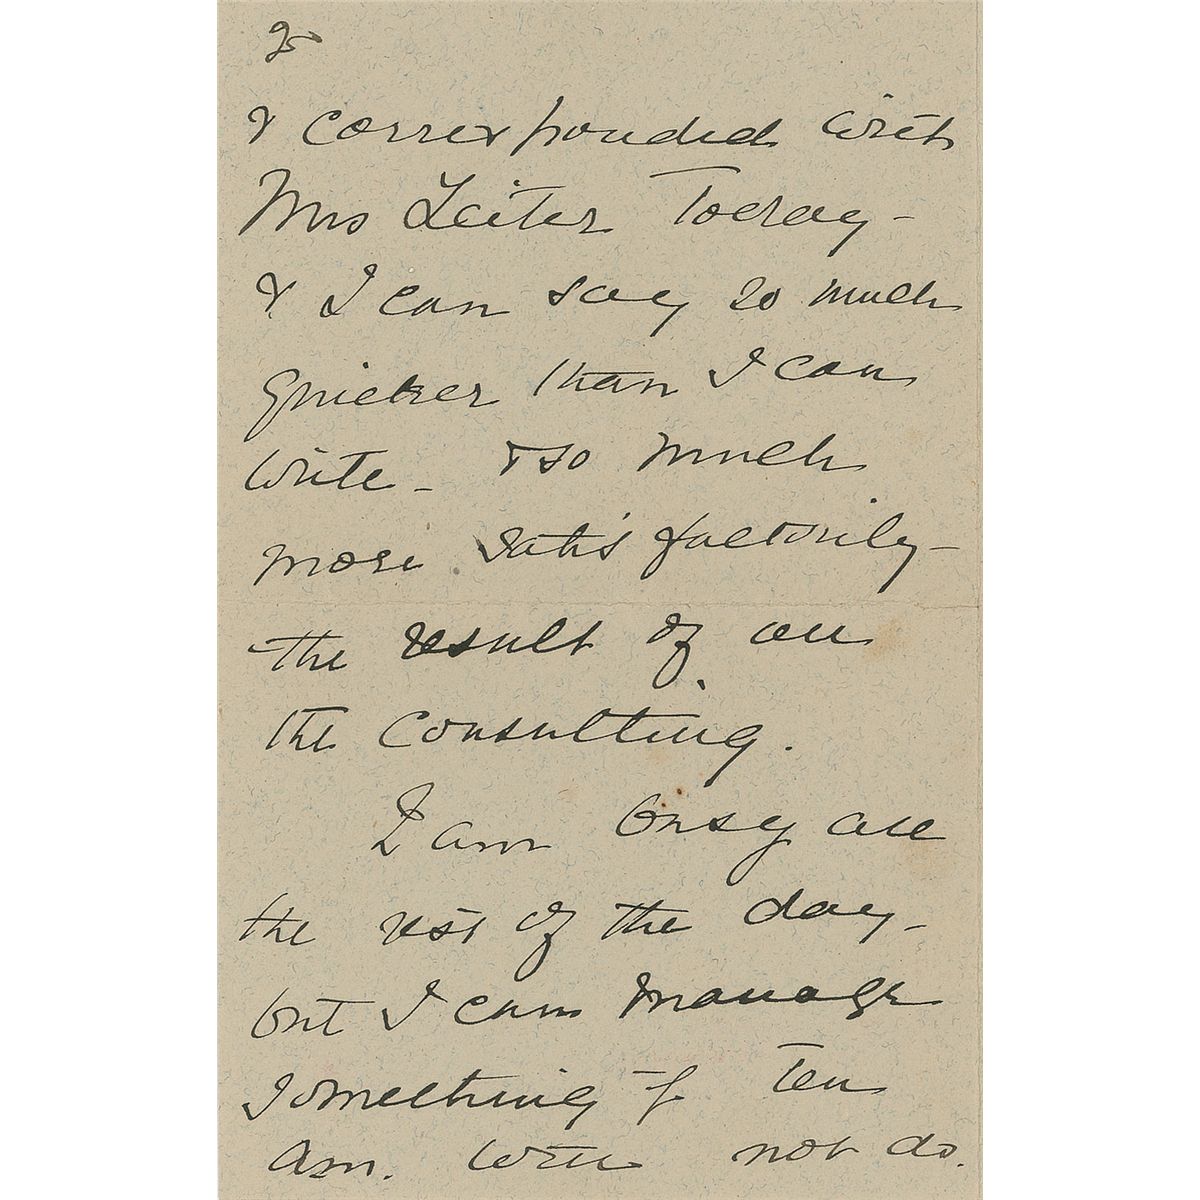 2
& corresponded with
Mrs Leiter Today -
& I can say so much
quicker than I can
write - & so much
more satisfactorily -
the result of all
the consulting.
I am busy all
the rest of the day -
but I can manage
something - if ten
am. will not do.